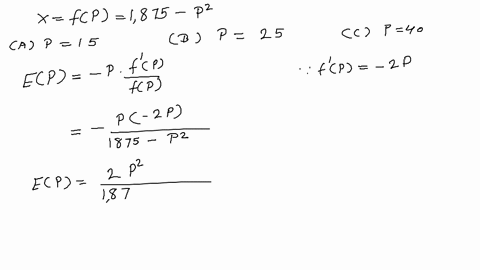 x = f(P) = 1,875 - P²
(A) P = 15 (B) P = 25 (C) P = 40
E(P) = -P · f'(P) / f(P) ∵ f'(P) = -2P
= - P(-2P) / 1875 - P²
E(P) = 2P² / 1,87